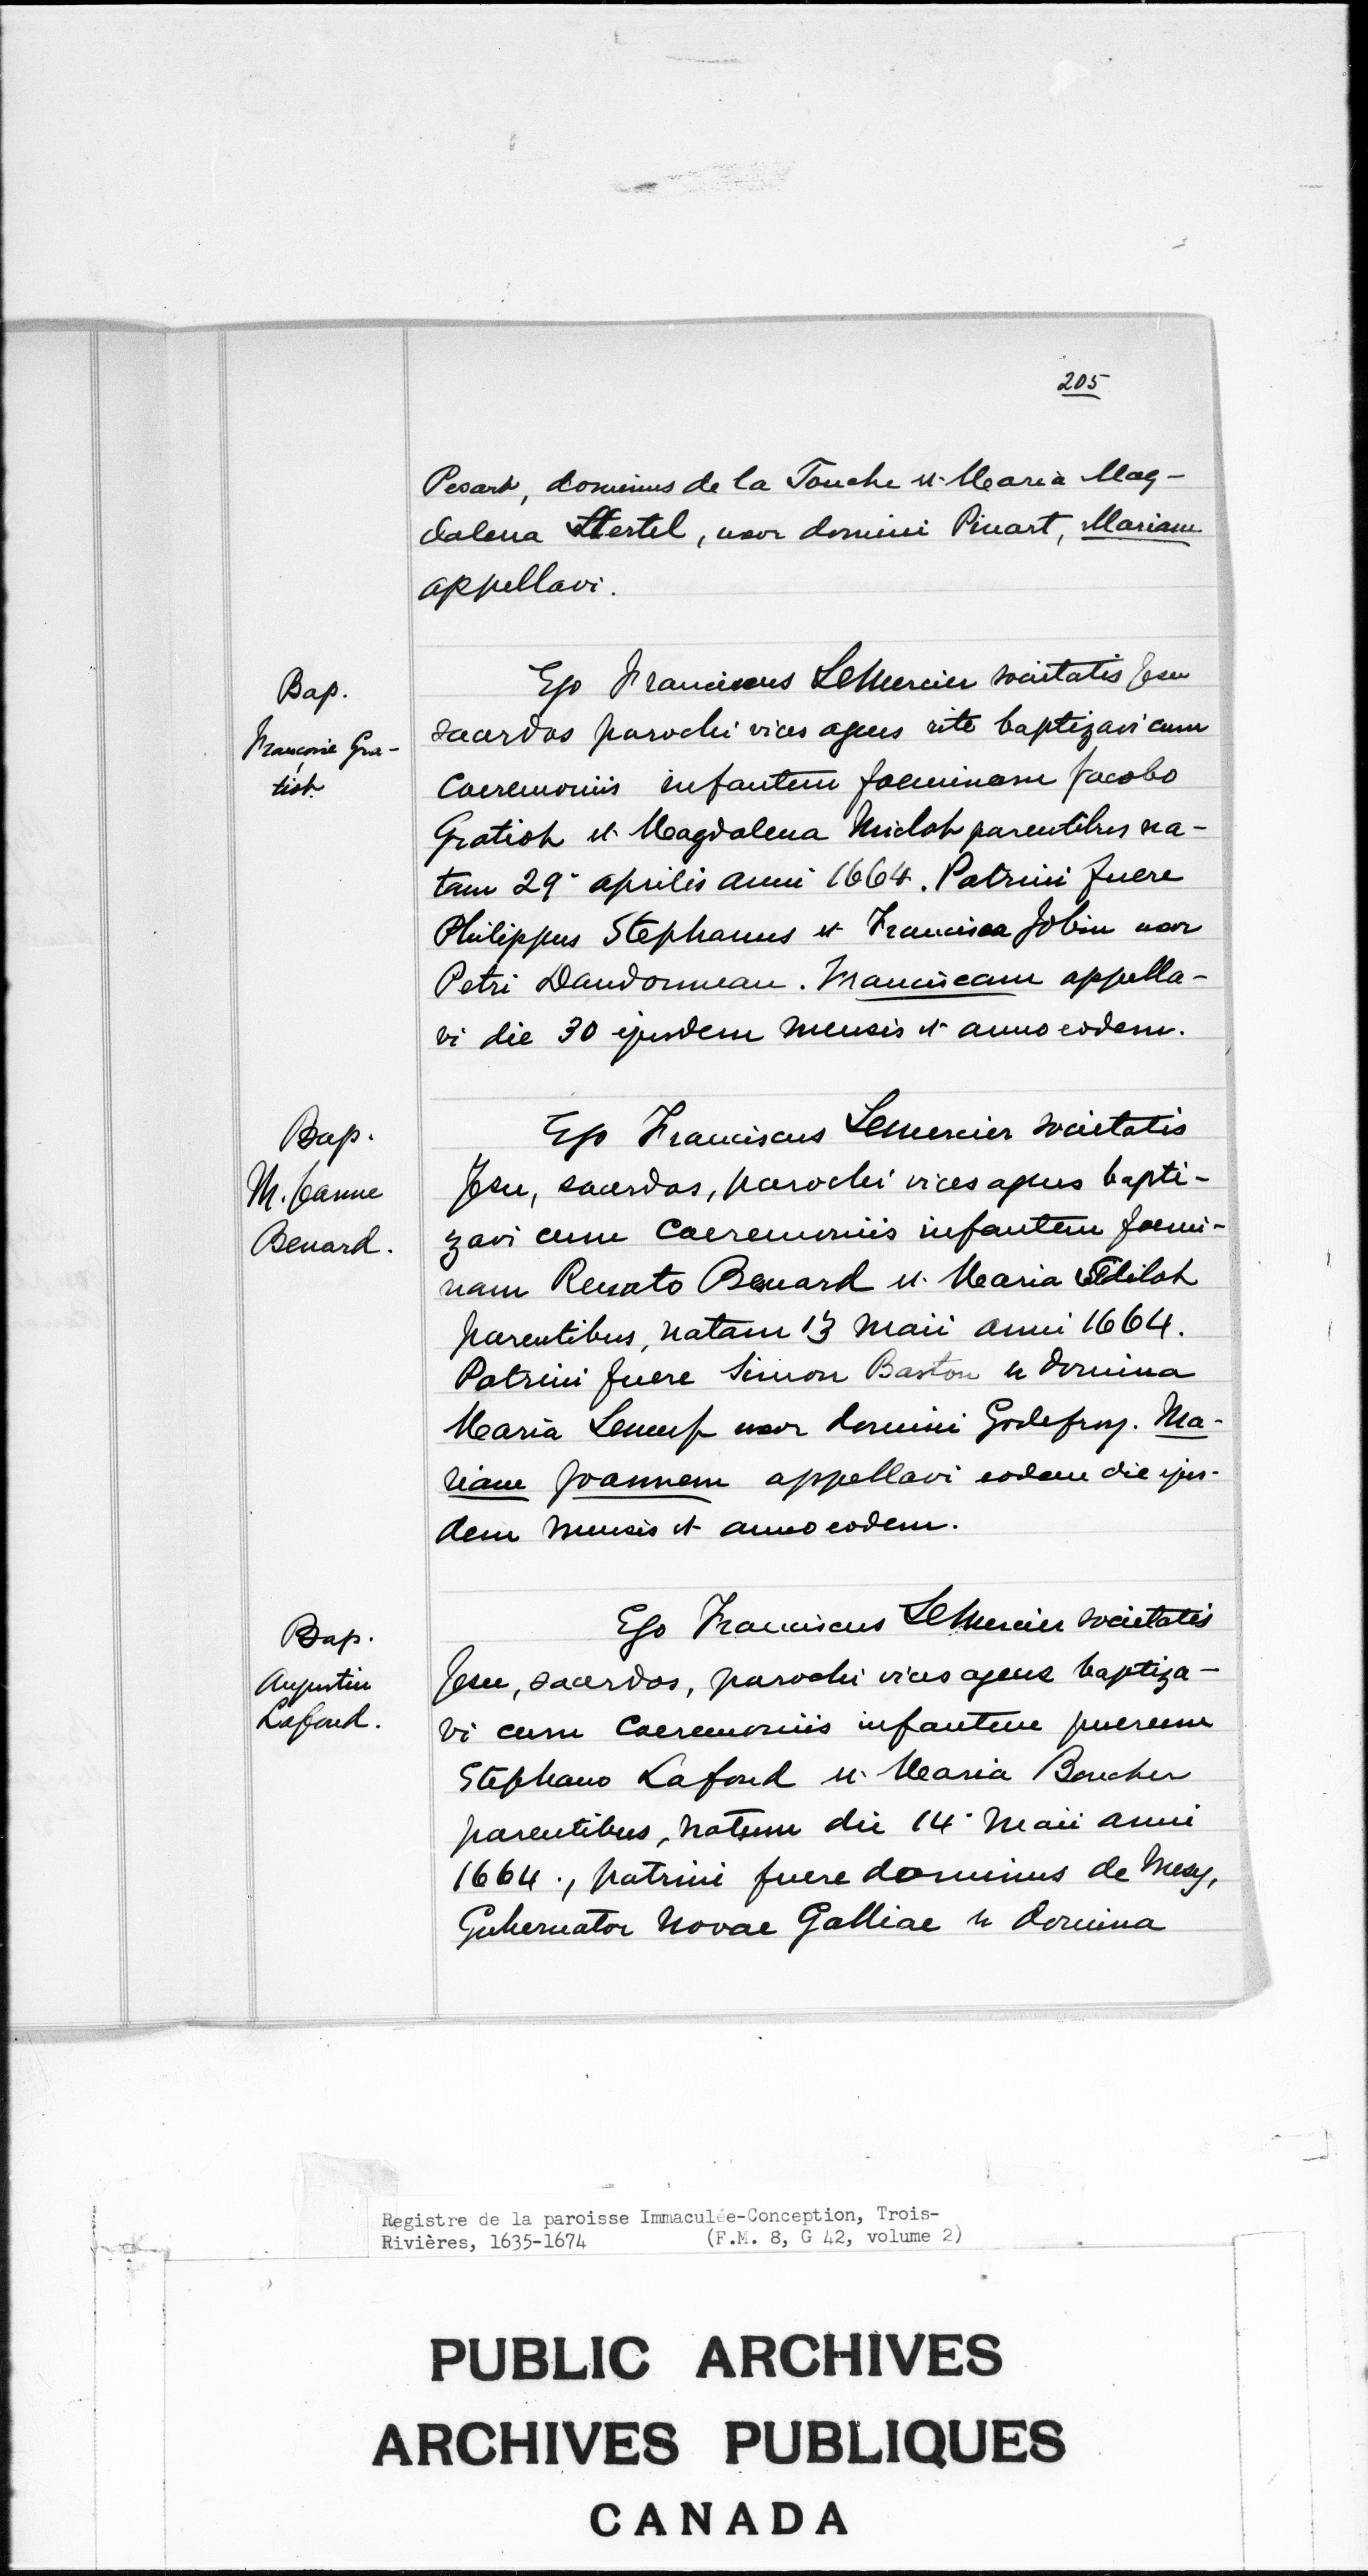 205
Pesart, dominus de la Touche et Maria Mag-
dalena Hertel, uxor domini Pinart, Mariam
appellavi.
Bap.
Françoise Gra-
tiot.
Ego Franciscus LeMercier societatis Jesu
sacerdos parochi vices agens rite baptizavi cum
caeremoniis infantem foeminam Jacobo
Gratiot et Magdalena Miclot parentibus na-
tam 29a aprilis anni 1664. Patrini fuere
Philippus Stephanus et Francisca Jobin uxor
Petri Dandonneau. Franciscam appella-
vi die 30 ejusdem mensis et anno eodem.
Bap.
M. Jeanne
Benard.
Ego Franciscus Lemercier societatis
Jesu, sacerdos, parochi vices agens bapti-
zavi cum caeremoniis infantem foemi-
nam Renato Benard et Maria Sedilot
parentibus, natam 13 maii anni 1664.
Patrini fuere Simon Baston et domina
Maria Leneuf uxor domini Godefroy. Ma-
riam Joannem appellavi eodem die ejus-
dem mensis et anno eodem.
Bap.
Augustin
Lafond.
Ego Franciscus LeMercier societatis
Jesu, sacerdos, parochi vices agens baptiza-
vi cum caeremoniis infantem puerum
Stephano Lafond et Maria Boucher
parentibus, natum die 14a maii anni
1664., patrini fuere dominus de Mesy,
Gubernator Novae Galliae et domina
Registre de la paroisse Immaculée-Conception, Trois-
Rivières, 1635-1674 (F.M. 8, G 42, volume 2)
PUBLIC ARCHIVES
ARCHIVES PUBLIQUES
CANADA